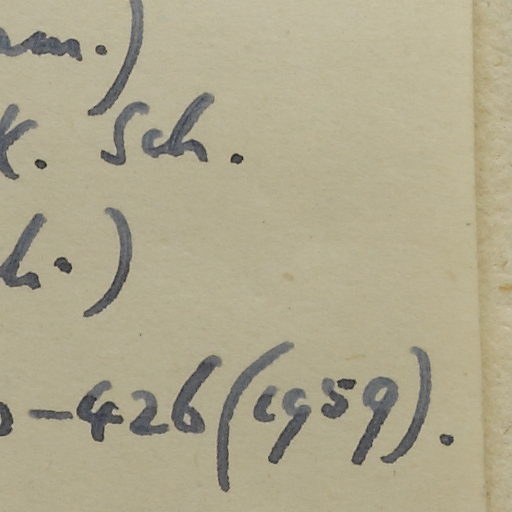 am.)
K. Sch.
h.)
-426 (1959).